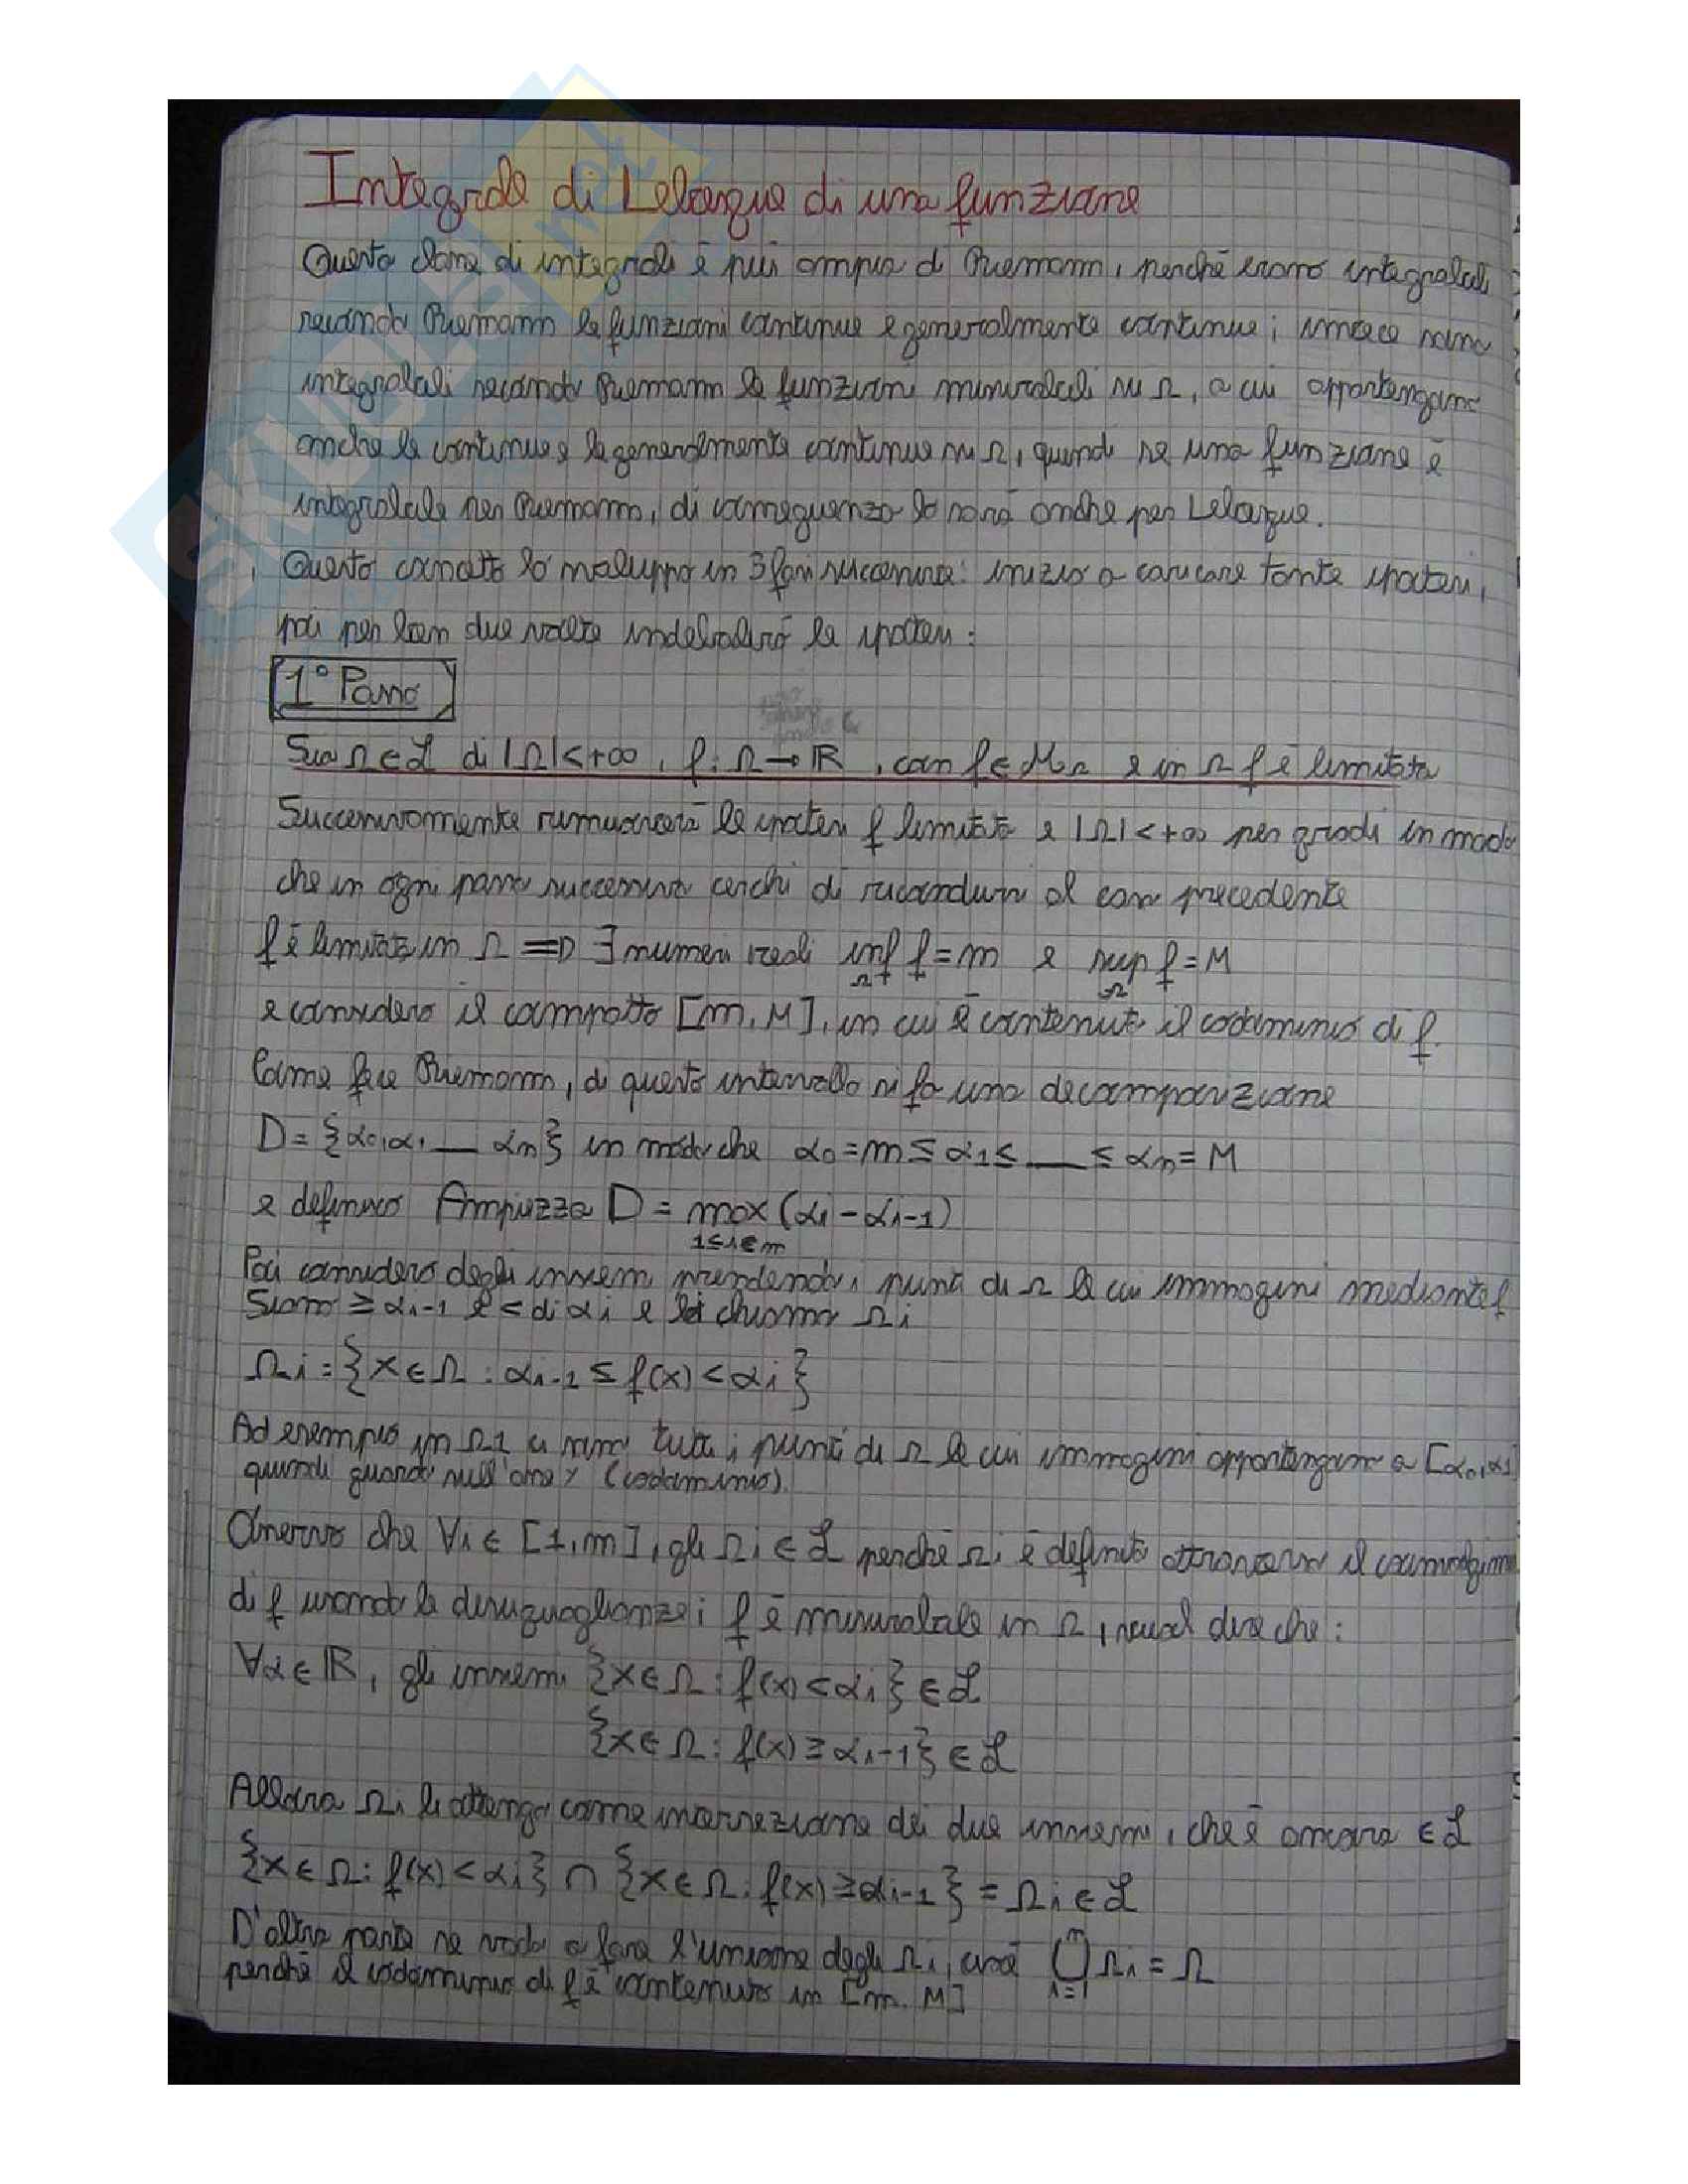 Integrale di Lebesgue di una funzione
Questa classe di integrali è più ampia di Riemann, perché erano integrabili
secondo Riemann le funzioni continue e generalmente continue; invece sono
integrabili secondo Riemann le funzioni misurabili su Ω, a cui appartengono
anche le continue e le generalmente continue su Ω, quindi se una funzione è
integrabile per Riemann, di conseguenza lo sarà anche per Lebesgue.
Questo concetto lo sviluppo in 3 fasi successive: inizio a caricare tante ipotesi,
poi per ben due volte indebolirò le ipotesi:
1° Passo
Sia Ω ∈ ℒ di |Ω| < +∞, f: Ω → ℝ, con f ∈ M_Ω e in Ω f è limitata
Successivamente rimuoverò le ipotesi f limitata e |Ω| < +∞ per gradi in modo
che in ogni passo successivo cerchi di ricondurmi al caso precedente
f è limitata in Ω ⟹ ∃ numeri reali inf_Ω f = m e sup_Ω f = M
e considero il compatto [m, M], in cui è contenuto il codominio di f.
Come fece Riemann, di questo intervallo si fa una decomposizione
D = {α₀, α₁ __ αₙ} in modo che α₀ = m ≤ α₁ ≤ __ ≤ αₙ = M
e definisco Ampiezza D = max (αi - αi-1)
1≤i≤n
Poi considero degli insiemi prendendo i punti di Ω le cui immagini mediante f
Siano ≥ αi-1 e < di αi e li chiamo Ωi
Ωi = {x ∈ Ω : αi-1 ≤ f(x) < αi}
Ad esempio in Ω1 ci sono tutti i punti di Ω le cui immagini appartengono a [α₀, α₁]
quindi guardo sull'asse y (codominio).
Osservo che ∀i ∈ [1, n], gli Ωi ∈ ℒ perché Ωi è definito attraverso il
di f usando le disuguaglianze; f è misurabile in Ω, vuol dire che:
∀α ∈ ℝ, gli insiemi {x ∈ Ω : f(x) < αi} ∈ ℒ
{x ∈ Ω : f(x) ≥ αi-1} ∈ ℒ
Allora Ωi li ottengo come intersezione dei due insiemi, che è ancora ∈ ℒ
{x ∈ Ω : f(x) < αi} ∩ {x ∈ Ω : f(x) ≥ αi-1} = Ωi ∈ ℒ
D'altra parte se vado a fare l'unione degli Ωi, cioè ⋃ⁿᵢ₌₁ Ωi = Ω
perché il codominio di f è contenuto in [m, M]